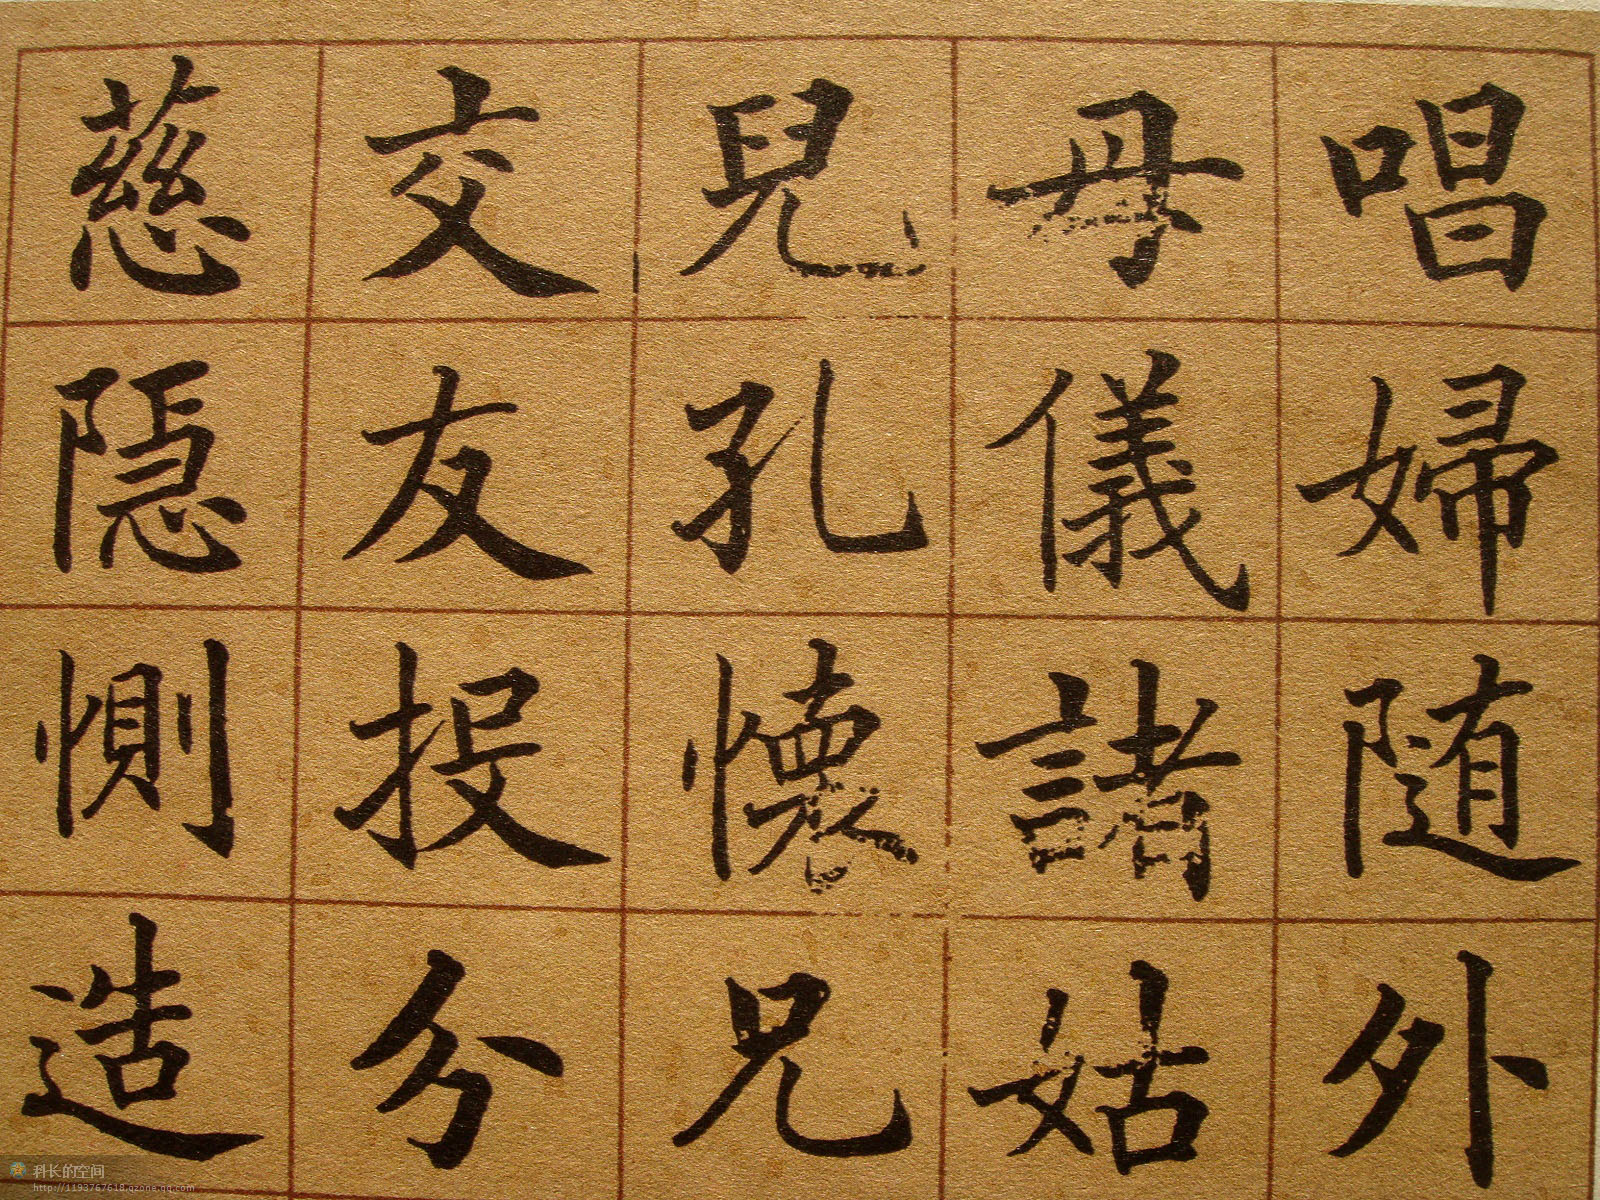 唱婦随外
母儀諸姑
兒孔懐兄
交友投分
慈隱惻造
科长的空间
http://1193767618.qzone.qq.com